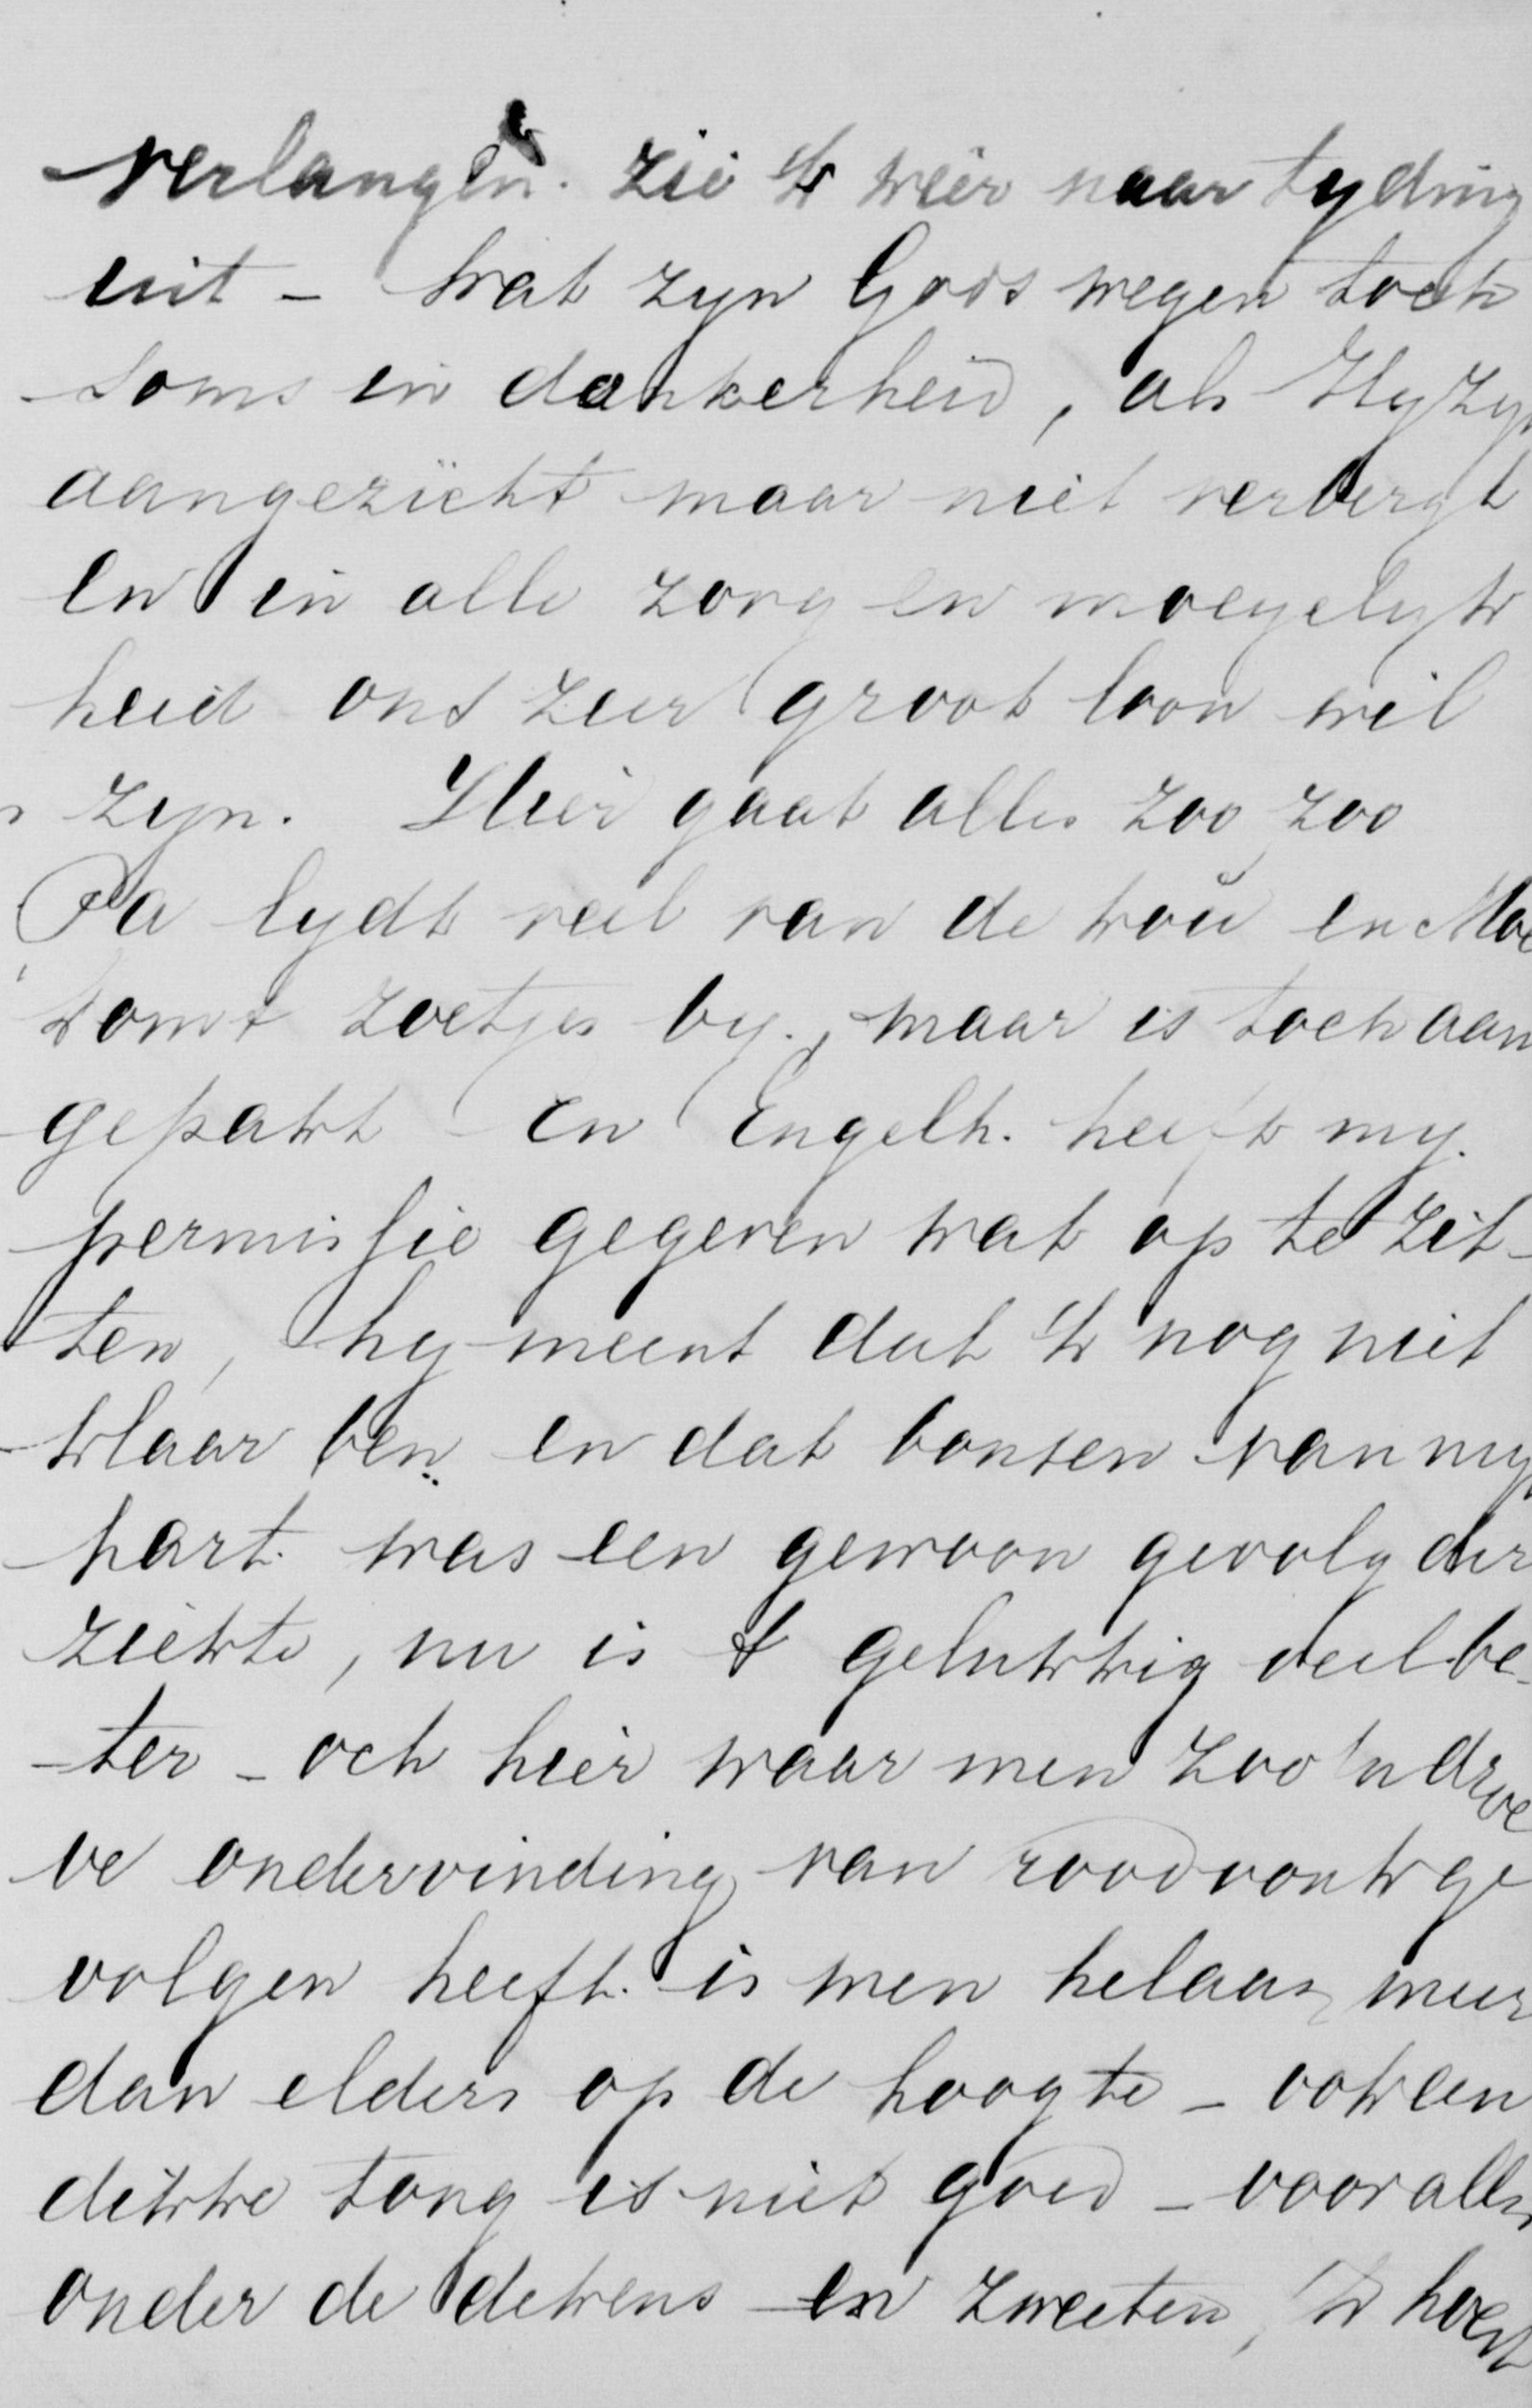 verlangen. zie 'k weer naar tyding
uit – wat zyn Gods wegen toch
soms in donkerheid, als Hy zyn
aangezicht maar niet verbergt
en in alle zorg en moeyelyk
heid ons zeer groot loon wil
zyn. Hier gaat alles zoo zoo
Pa lydt veel van de kou en Moe
komt zoetjes by, maar is toch aan
gepakt – en Engelh. heeft my.
permissie gegeven wat op te zit-
ten, hy meent dat 'k nog niet
klaar ben en dat bonsen van myn
hart was een gewoon gevolg der
ziekte, nu is 't gelukkig veel be-
ter – och hier waar men zoo 'n droe
ve ondervinding van roodvonk ge
volgen heeft is men helaas meer
dan elders op de hoogte – ook een
dikke tong is niet goed – voor alles
onder de dekens en zweeten, 'k hoest